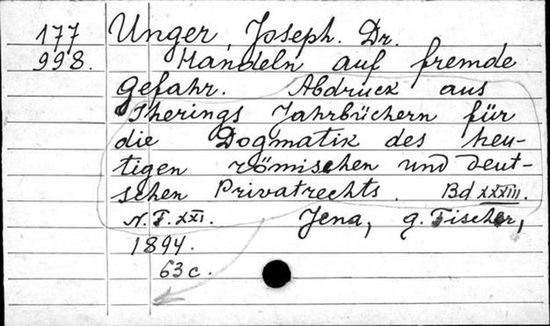 177 Unger, Joseph. Dr.
998. Handeln auf fremde
Gefahr. Abdruck aus
Iherings Jahrbüchern für
die Dogmatik des heu-
tigen römischen und deut-
schen Privatrechts. Bd XXXIII.
N. F. XXI. Jena, G. Fischer,
1894.
63 c.